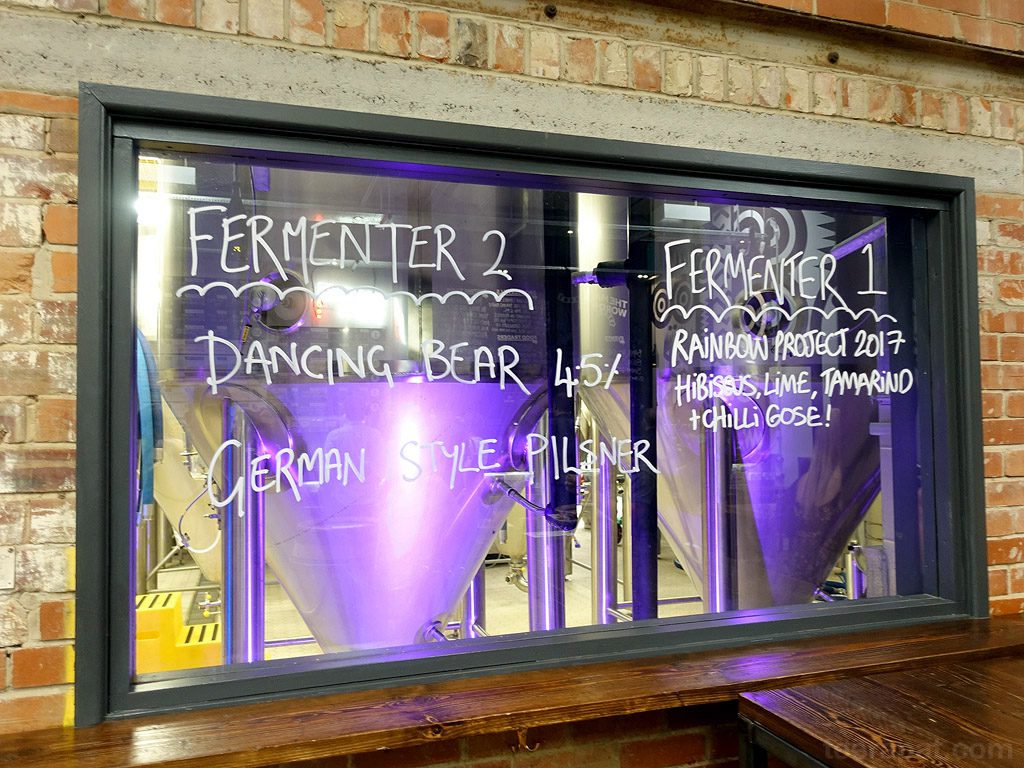 FERMENTER 2
DANCING BEAR 4.5%
GERMAN STYLE PILSNER
FERMENTER 1
RAINBOW PROJECT 2017
HIBISCUS, LIME, TAMARIND
+CHILLI GOSE!